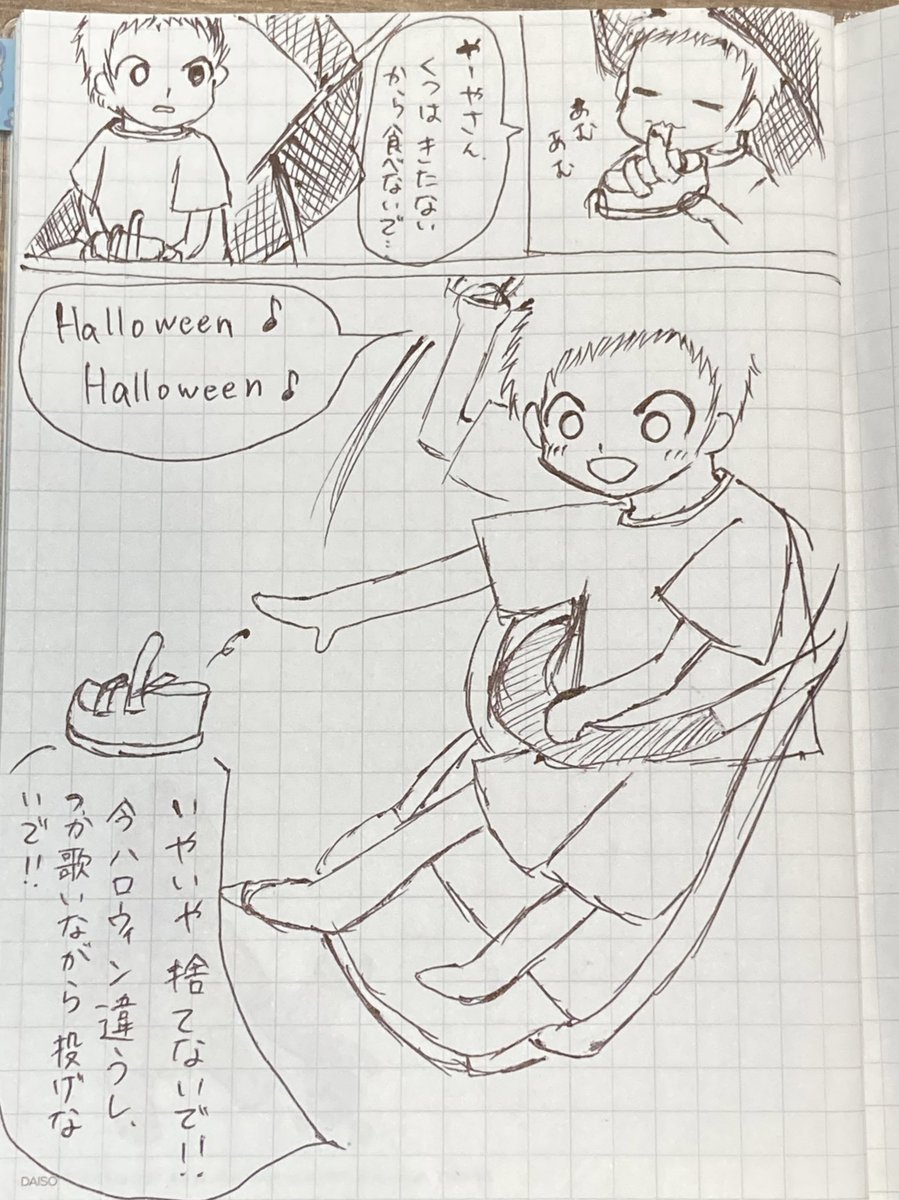 あむ
あむ
やーやさん、
くつは きたない
から食べないで…
Halloween♪
Halloween♪
いやいや 捨てないで!!
今ハロウィン違うし、
つか歌いながら 投げな
いで!!
DAISO